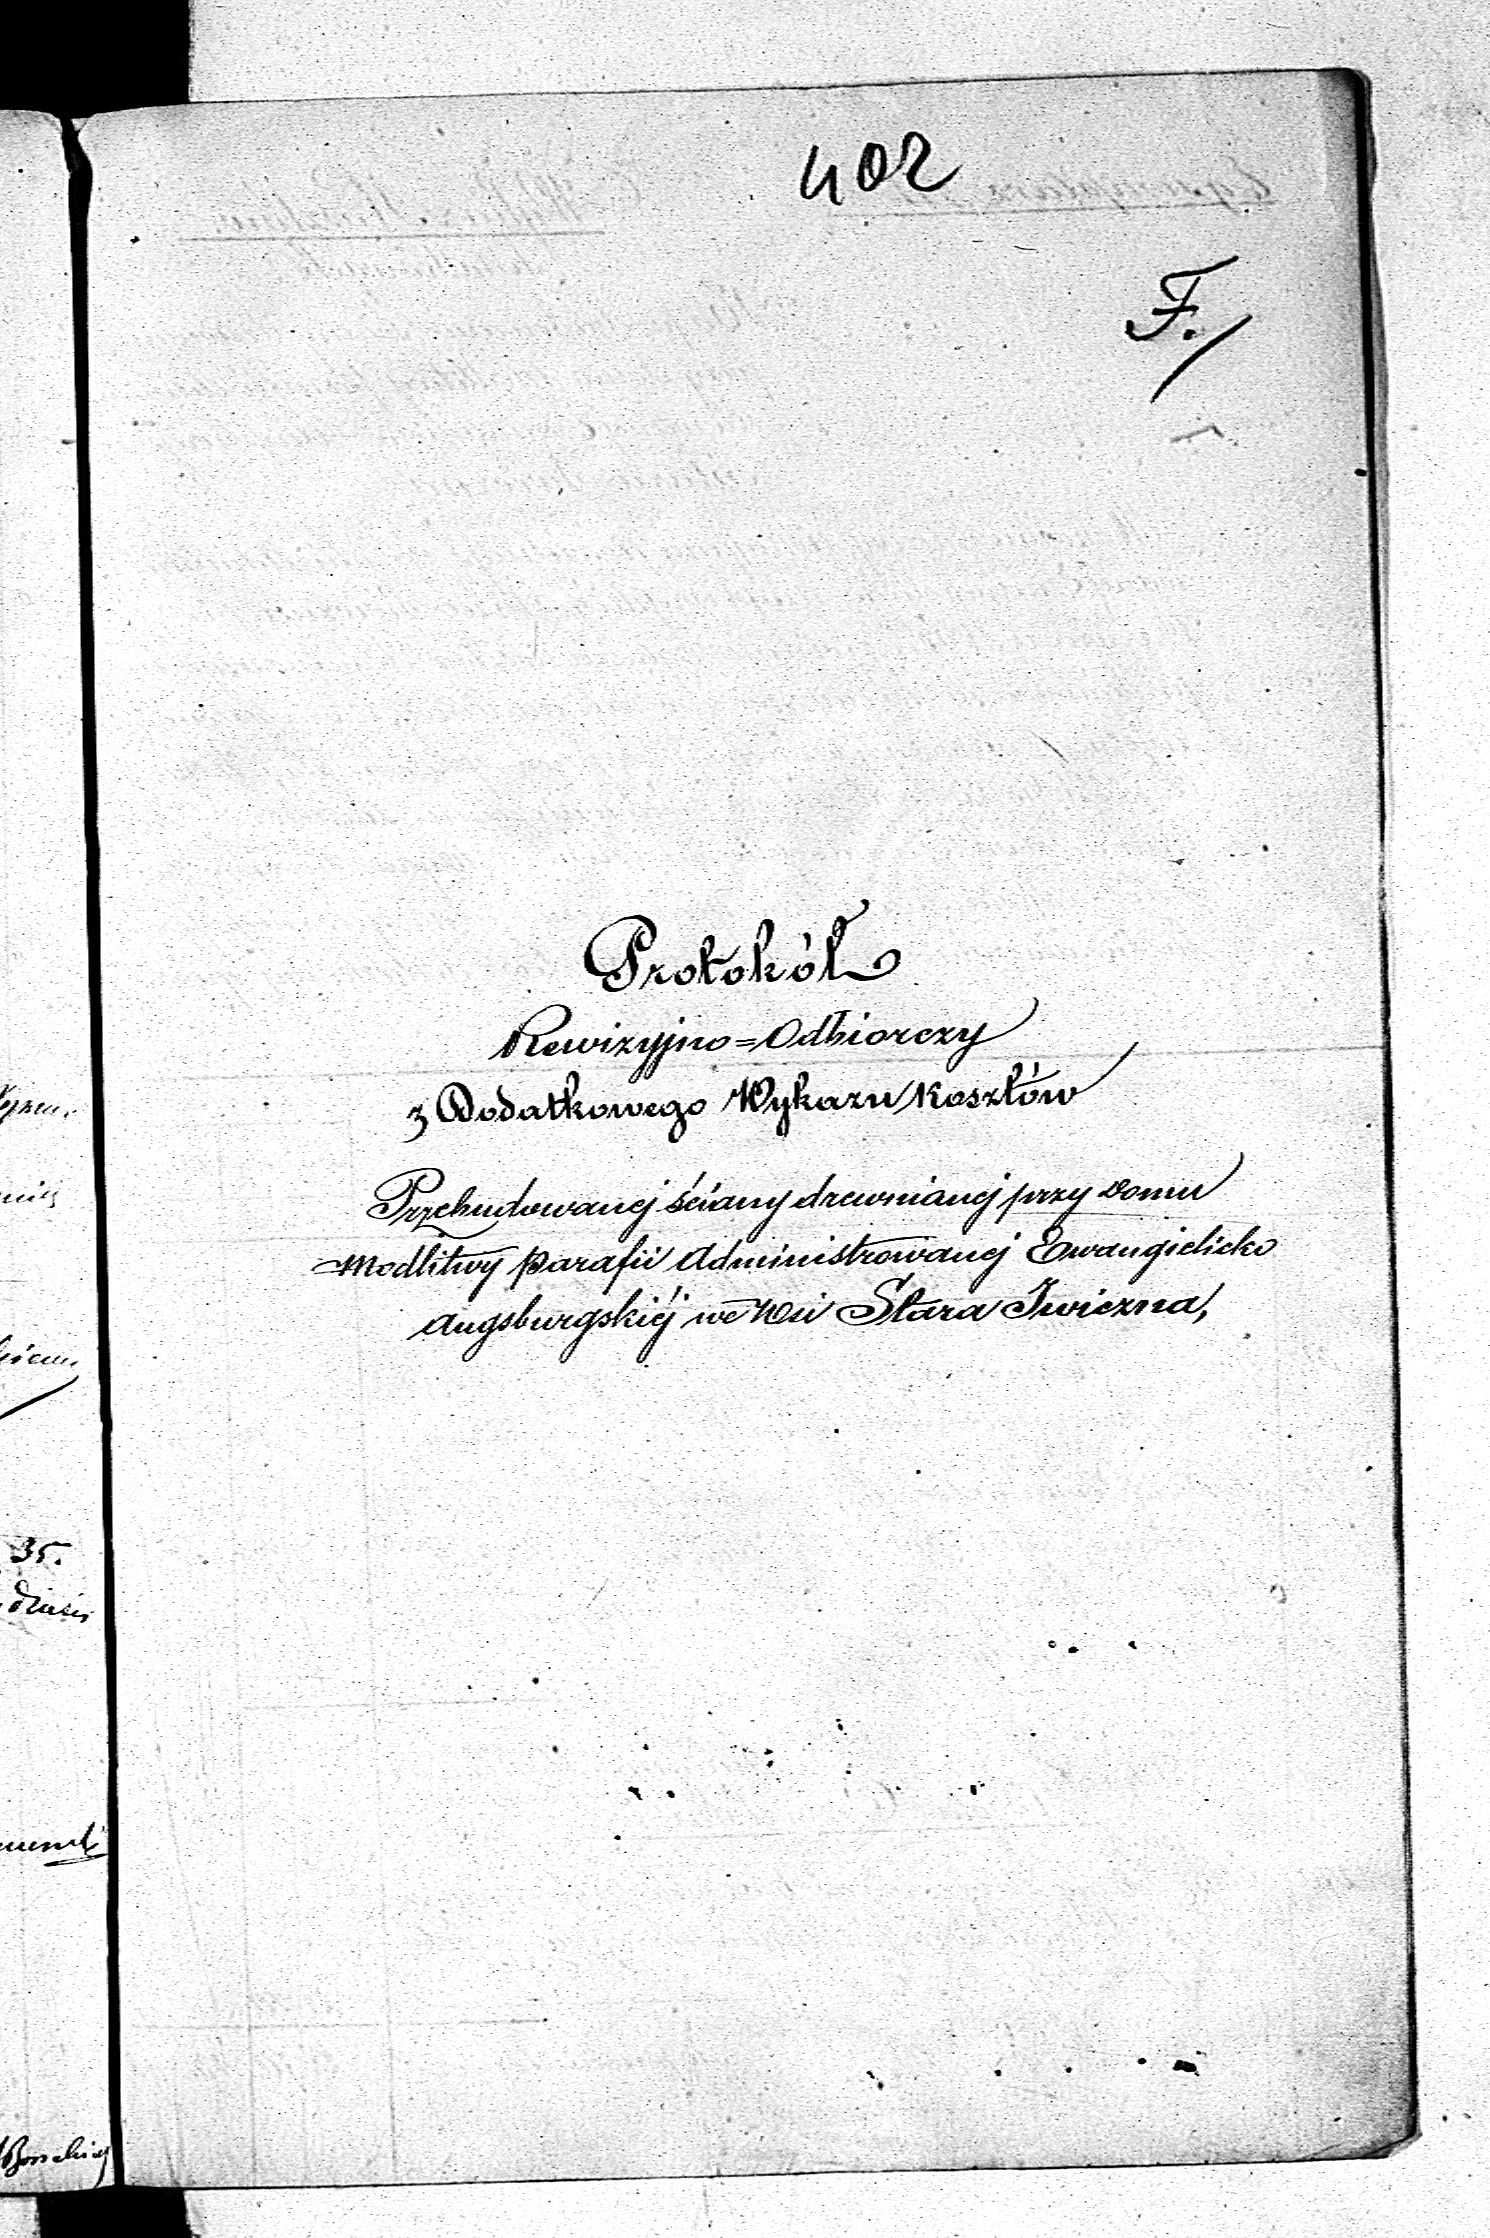 402
F.
Protokół
Rewizyjno=Odbiorczy
z Dodatkowego Wykazu Kosztów
Przebudowanej ściany drewnianej przy Domu
Modlitwy Parafii Administrowanej Ewangielicko
Augsburgskiéj we Wsi Stara Iwiczna,
35.